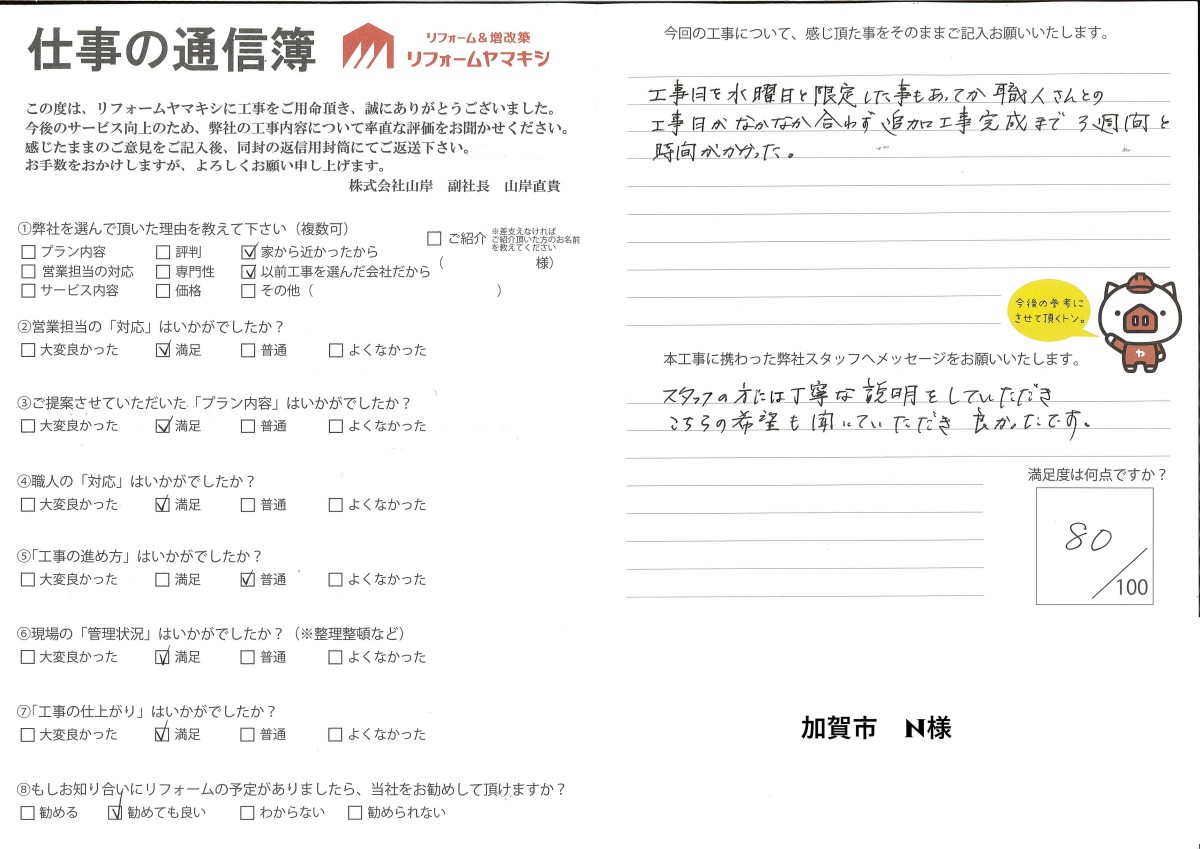 仕事の通信簿
リフォーム&増改築
リフォームヤマキシ
この度は、リフォームヤマキシに工事をご用命頂き、誠にありがとうございました。
今後のサービス向上のため、弊社の工事内容について率直な評価をお聞かせください。
感じたままのご意見をご記入後、同封の返信用封筒にてご返送下さい。
お手数をおかけしますが、よろしくお願い申し上げます。
株式会社山岸 副社長 山岸直貴
①弊社を選んで頂いた理由を教えて下さい（複数可）
□プラン内容 □評判 ☑家から近かったから
□営業担当の対応 □専門性 ☑以前工事を選んだ会社だから
□サービス内容 □価格 □その他（ ）
□ご紹介
※差支えなければ
ご紹介頂いた方のお名前
を教えてください
（ 様）
②営業担当の「対応」はいかがでしたか？
□大変良かった ☑満足 □普通 □よくなかった
③ご提案させていただいた「プラン内容」はいかがでしたか？
□大変良かった ☑満足 □普通 □よくなかった
④職人の「対応」はいかがでしたか？
□大変良かった ☑満足 □普通 □よくなかった
⑤「工事の進め方」はいかがでしたか？
□大変良かった □満足 ☑普通 □よくなかった
⑥現場の「管理状況」はいかがでしたか？（※整理整頓など）
□大変良かった ☑満足 □普通 □よくなかった
⑦「工事の仕上がり」はいかがでしたか？
□大変良かった ☑満足 □普通 □よくなかった
⑧もしお知り合いにリフォームの予定がありましたら、当社をお勧めして頂けますか？
□勧める ☑勧めても良い □わからない □勧められない
今回の工事について、感じ頂た事をそのままご記入お願いいたします。
工事日を水曜日と限定した事もあってか職人さんとの
工事日がなかなか合わず追加工事完成まで3週間と
時間がかかった。
今後の参考に
させて頂くトン。
ヤ
本工事に携わった弊社スタッフへメッセージをお願いいたします。
スタッフの方には丁寧な説明をしていただき
こちらの希望も聞いていただき良かったです。
満足度は何点ですか？
80
/100
加賀市 N様